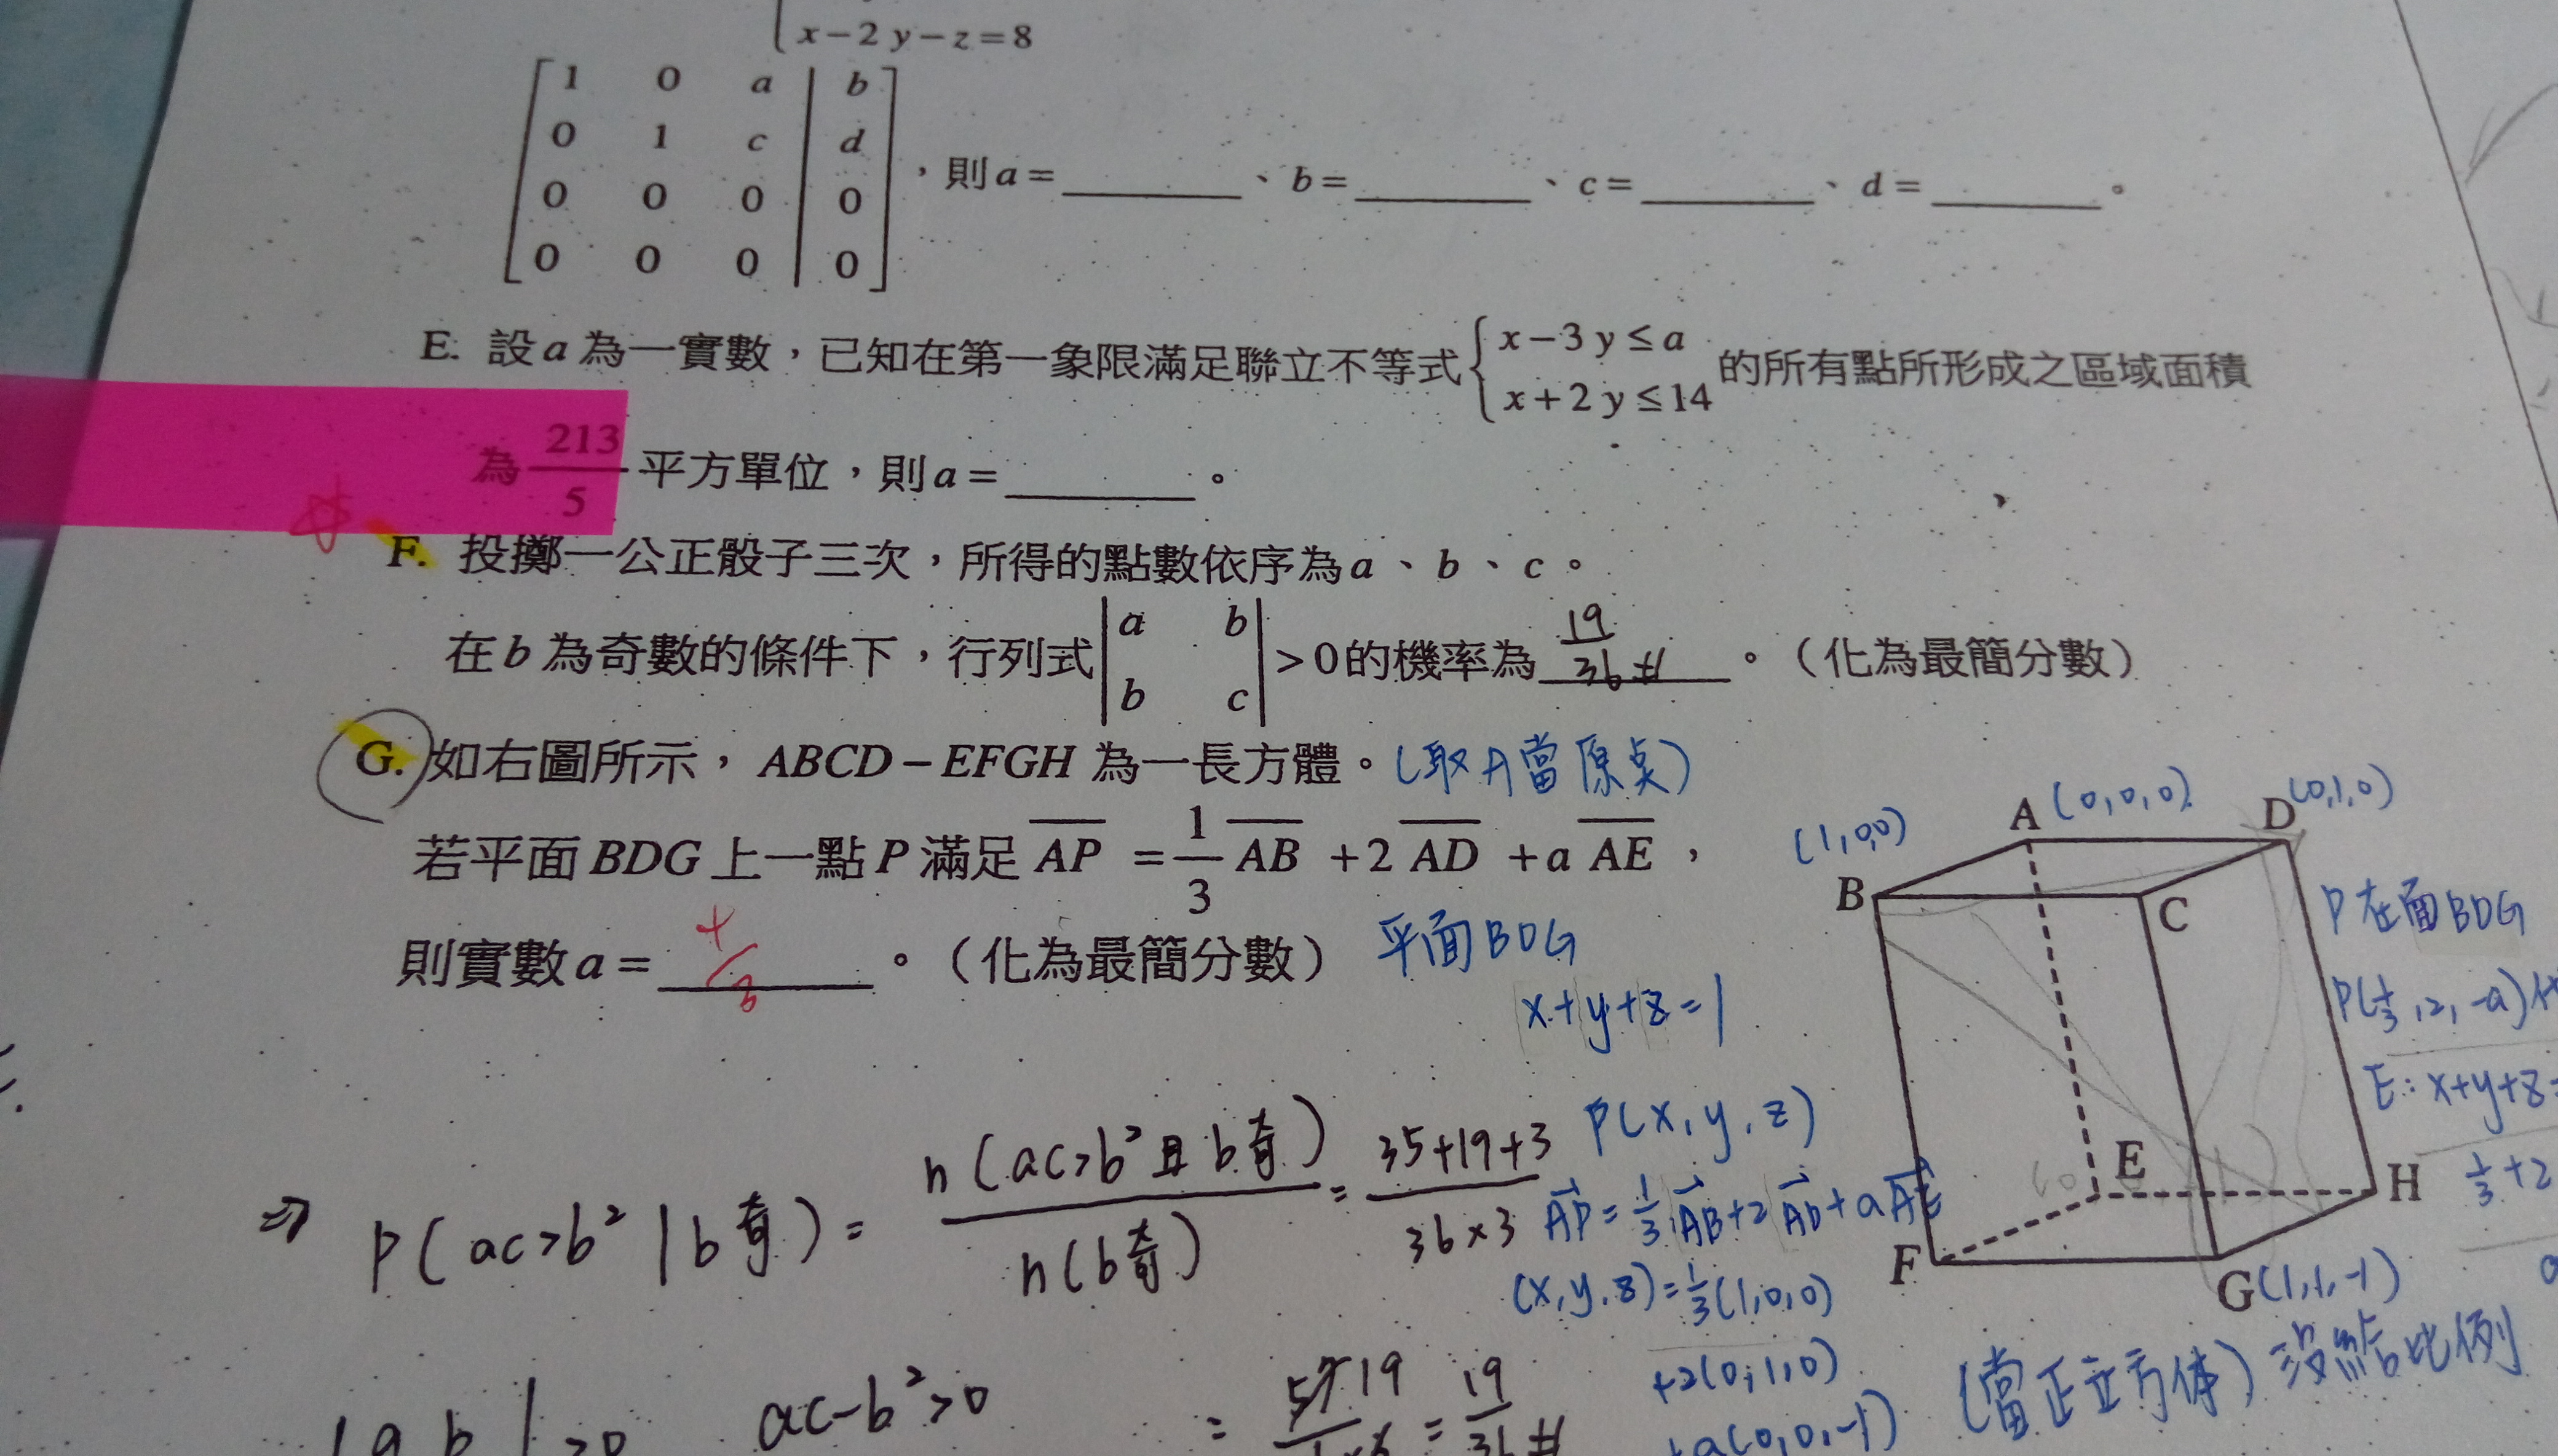 x−2y−z=8
[1 0 a | b]
[0 1 c | d]
[0 0 0 | 0]
[0 0 0 | 0]
，則a=______、b=______、c=______、d=______。
E. 設a為一實數，已知在第一象限滿足聯立不等式{x−3y≤a
x+2y≤14
的所有點所形成之區域面積
為213/5平方單位，則a=______。
F. 投擲一公正骰子三次，所得的點數依序為a、b、c。
在b為奇數的條件下，行列式|a b
b c|>0的機率為 19/36 #。（化為最簡分數）
G. 如右圖所示，ABCD−EFGH為一長方體。(取A當原点)
若平面BDG上一點P滿足AP=1/3AB+2AD+aAE，
則實數a=4/3。（化為最簡分數）
平面BDG
x+y+z=1
A (0,0,0)
D (0,1,0)
(1,0,0)
B
C
E
H
F
G(1,1,-1)
P在面BDG
P(1/3,2,-a)
E:x+y+z=
1/3+2
P(x,y,z)
AP=1/3AB+2AD+aAE
(x,y,z)=1/3(1,0,0)
+2(0,1,0)
+a(0,0,-1)
(當正立方体)沒給比例
⇒ P(ac>b²|b奇)=n(ac>b²且b奇)/n(b奇)=35+19+3/36×3
ac-b²>0
|a b|>0
=57 19/=19/36 #